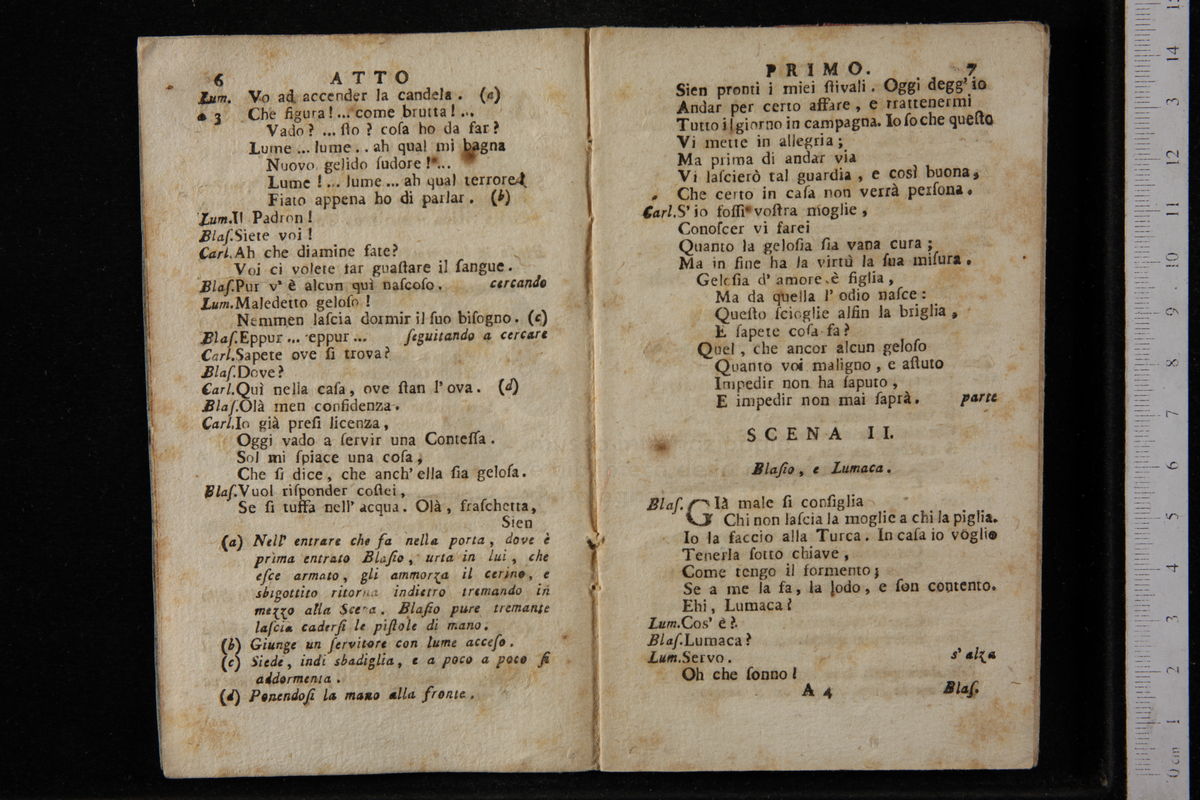 6 ATTO
Lum. Vo ad accender la candela. (a)
a 3 Che figura!... come brutta!...
Vado? ... ſto? coſa ho da far?
Lume ... lume .. ah qual mi bagna
Nuovo gelido ſudore!...
Lume!... lume ... ah qual terrore!
Fiato appena ho di parlar. (b)
Lum. Il Padron!
Blaſ. Siete voi!
Carl. Ah che diamine fate?
Voi ci volete far guaſtare il ſangue.
Blaſ. Pur v' è alcun quì naſcoſo. cercando
Lum. Maledetto geloſo!
Nemmen laſcia dormir il ſuo biſogno. (c)
Blaſ. Eppur ... eppur ... ſeguitando a cercare
Carl. Sapete ove ſi trova?
Blaſ. Dove?
Carl. Quì nella caſa, ove ſtan l' ova. (d)
Blaſ. Olà men confidenza.
Carl. Io già preſi licenza,
Oggi vado a ſervir una Conteſſa.
Sol mi ſpiace una coſa,
Che ſi dice, che anch' ella ſia geloſa.
Blaſ. Vuol riſponder coſtei,
Se ſi tuffa nell' acqua. Olà, fraſchetta,
Sien
(a) Nell' entrare che fa nella porta, dove è
prima entrato Blaſio, urta in lui, che
eſce armato, gli ammorza il cerino, e
sbigottito ritorna indietro tremando in
mezzo alla Scena. Blaſio pure tremante
laſcia caderſi le piſtole di mano.
(b) Giunge un ſervitore con lume acceſo.
(c) Siede, indi sbadiglia, e a poco a poco ſi
addormenta.
(d) Ponendoſi la mano alla fronte.
PRIMO. 7
Sien pronti i miei ſtivali. Oggi degg' io
Andar per certo affare, e trattenermi
Tutto il giorno in campagna. Io ſo che queſto
Vi mette in allegria;
Ma prima di andar via
Vi laſcierò tal guardia, e così buona,
Che certo in caſa non verrà perſona.
Carl. S' io foſſi voſtra moglie,
Conoſcer vi farei
Quanto la geloſia ſia vana cura;
Ma in fine ha la virtù la ſua miſura.
Geloſia d' amore è figlia,
Ma da quella l' odio naſce:
Queſto ſcioglie alfin la briglia,
E ſapete coſa fa?
Quel, che ancor alcun geloſo
Quanto voi maligno, e aſtuto
Impedir non ha ſaputo,
E impedir non mai ſaprà. parte
SCENA II.
Blaſio, e Lumaca.
Blaſ. Già male ſi conſiglia
Chi non laſcia la moglie a chi la piglia.
Io la faccio alla Turca. In caſa io voglio
Tenerla ſotto chiave,
Come tengo il formento;
Se a me la fa, la lodo, e ſon contento.
Ehi, Lumaca?
Lum. Cos' è?
Blaſ. Lumaca?
Lum. Servo. s' alza
Oh che ſonno!
A 4 Blaſ.
0 cm 1 2 3 4 5 6 7 8 9 10 11 12 3 14